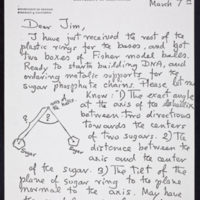 March 7
Dear Jim,
I have just received the rest of the
plastic rings for the bases, and got
two boxes of Fisher model bases.
Ready to start building DNA, and
ordering metalic supports for the
sugar phosphate chains. Please let me
know: 1) The exact angle
at the axis of the
between two directions
towards the centers
of two sugars. 2) The
distance between the
axis and the center
of the sugar. 3) The tilt of the
plane of sugar ring to the plane
normal to the axis. May have
Sugar
Sugar